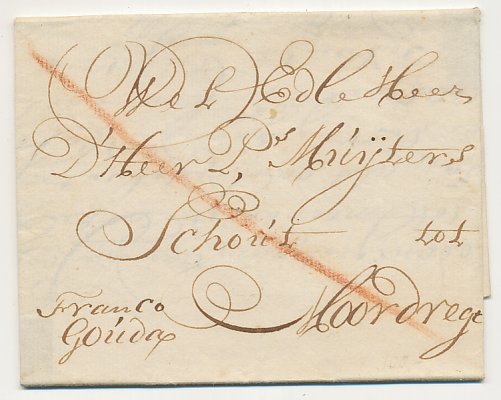 Wel Edle Heer
D'Heer Ps. Múijters
Schoút tot
Moordregt
Franco
Goúda